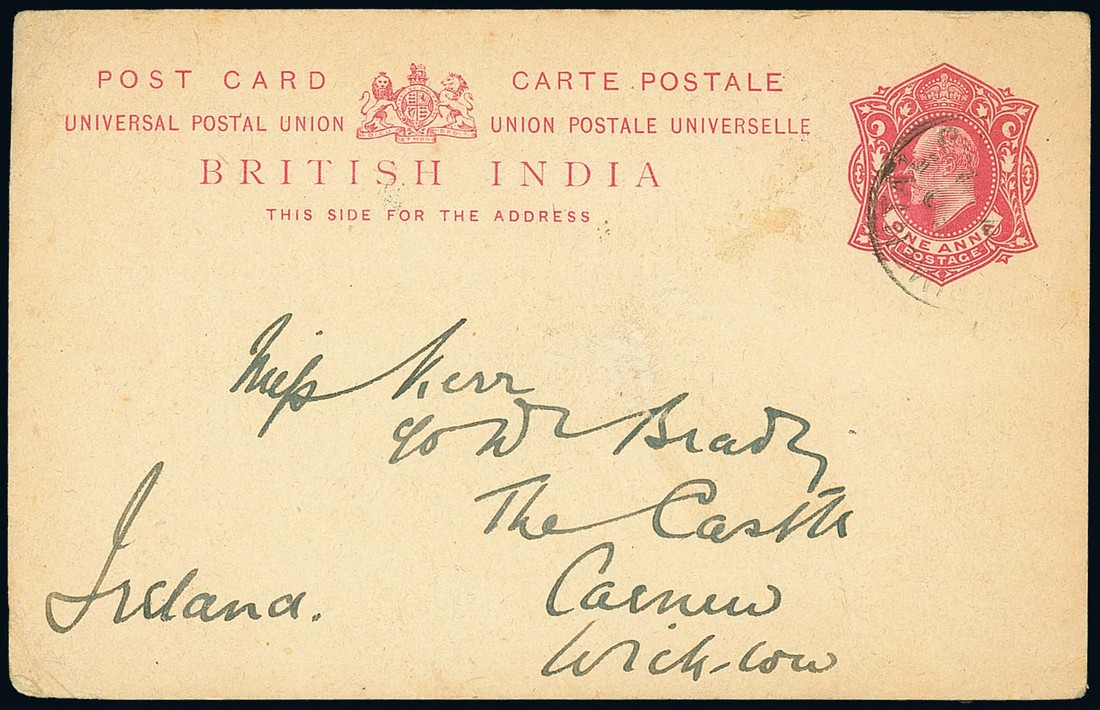 POST CARD CARTE POSTALE
UNIVERSAL POSTAL UNION UNION POSTALE UNIVERSELLE
BRITISH INDIA
THIS SIDE FOR THE ADDRESS
ONE ANNA
POSTAGE
Miss Kerr
c/o Dr Brady
The Castle
Carnew
Wicklow
Ireland.